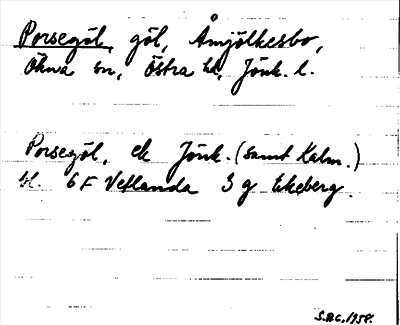 Porsegöl, göl, Åmjölkesbo,
Ökna sn, Östra hd, Jönk. l.
Porsegöl, ek Jönk. (samt Kalm.)
bl. 6 F Vetlanda 3 g Ekeberg.
S.B.G. 1958.